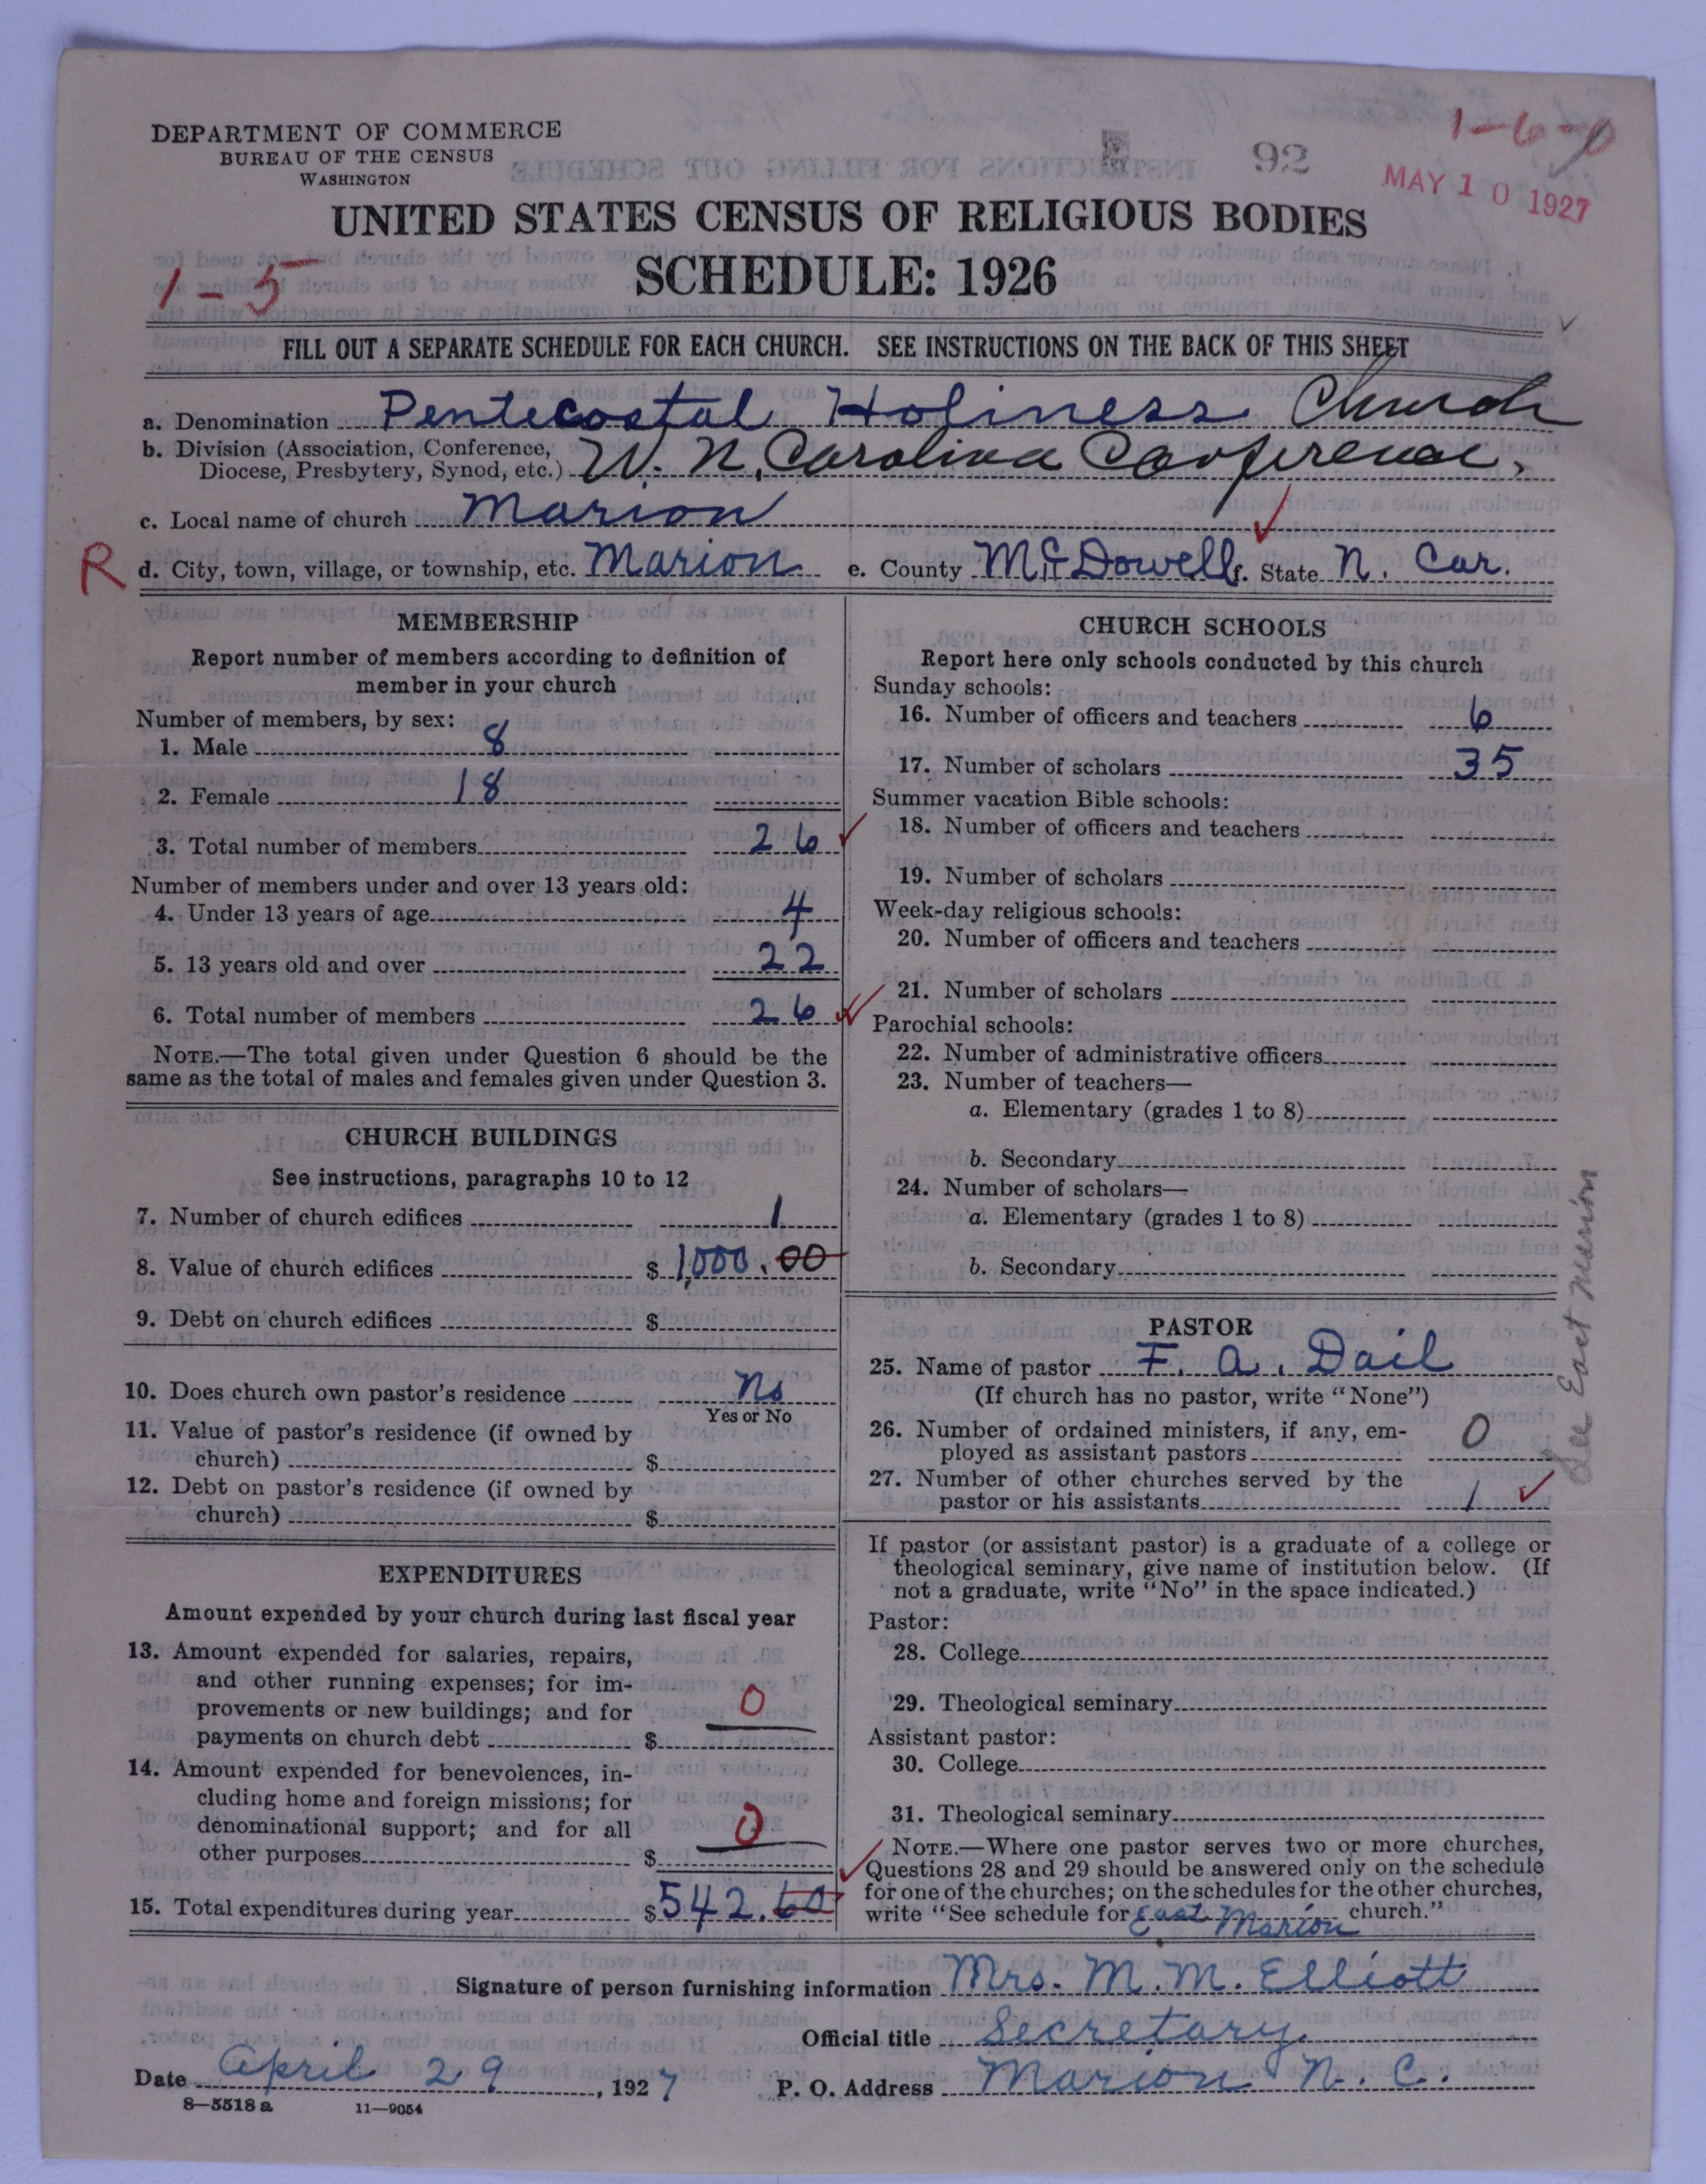 DEPARTMENT OF COMMERCE
BUREAU OF THE CENSUS
WASHINGTON
92
1-6-0
MAY 10 1927
UNITED STATES CENSUS OF RELIGIOUS BODIES
SCHEDULE: 1926
1-5
FILL OUT A SEPARATE SCHEDULE FOR EACH CHURCH. SEE INSTRUCTIONS ON THE BACK OF THIS SHEET
a. Denomination Pentecostal Holiness Church
b. Division (Association, Conference,
Diocese, Presbytery, Synod, etc.) W. N. Carolina Conference,
c. Local name of church Marion
R d. City, town, village, or township, etc. Marion e. County McDowell f. State N. Car.
MEMBERSHIP
Report number of members according to definition of
member in your church
Number of members, by sex:
1. Male 8
2. Female 18
3. Total number of members 26
Number of members under and over 13 years old:
4. Under 13 years of age 4
5. 13 years old and over 22
6. Total number of members 26
NOTE.—The total given under Question 6 should be the
same as the total of males and females given under Question 3.
CHURCH BUILDINGS
See instructions, paragraphs 10 to 12
7. Number of church edifices 1
8. Value of church edifices $ 1,000.00
9. Debt on church edifices $
10. Does church own pastor's residence No
Yes or No
11. Value of pastor's residence (if owned by
church) $
12. Debt on pastor's residence (if owned by
church) $
EXPENDITURES
Amount expended by your church during last fiscal year
13. Amount expended for salaries, repairs,
and other running expenses; for im-
provements or new buildings; and for
payments on church debt $ 0
14. Amount expended for benevolences, in-
cluding home and foreign missions; for
denominational support; and for all
other purposes $ 0
15. Total expenditures during year $ 542.60
CHURCH SCHOOLS
Report here only schools conducted by this church
Sunday schools:
16. Number of officers and teachers 6
17. Number of scholars 35
Summer vacation Bible schools:
18. Number of officers and teachers
19. Number of scholars
Week-day religious schools:
20. Number of officers and teachers
21. Number of scholars
Parochial schools:
22. Number of administrative officers
23. Number of teachers—
a. Elementary (grades 1 to 8)
b. Secondary
24. Number of scholars—
a. Elementary (grades 1 to 8)
b. Secondary
PASTOR
25. Name of pastor F. A. Dail
(If church has no pastor, write "None")
26. Number of ordained ministers, if any, em-
ployed as assistant pastors 0
27. Number of other churches served by the
pastor or his assistants 1
See East Marion
If pastor (or assistant pastor) is a graduate of a college or
theological seminary, give name of institution below. (If
not a graduate, write "No" in the space indicated.)
Pastor:
28. College
29. Theological seminary
Assistant pastor:
30. College
31. Theological seminary
NOTE.—Where one pastor serves two or more churches,
Questions 28 and 29 should be answered only on the schedule
for one of the churches; on the schedules for the other churches,
write "See schedule for East Marion church."
Signature of person furnishing information Mrs. M. M. Elliott
Official title Secretary
Date April 29, 1927 P. O. Address Marion N. C.
8—5518 a 11—9054